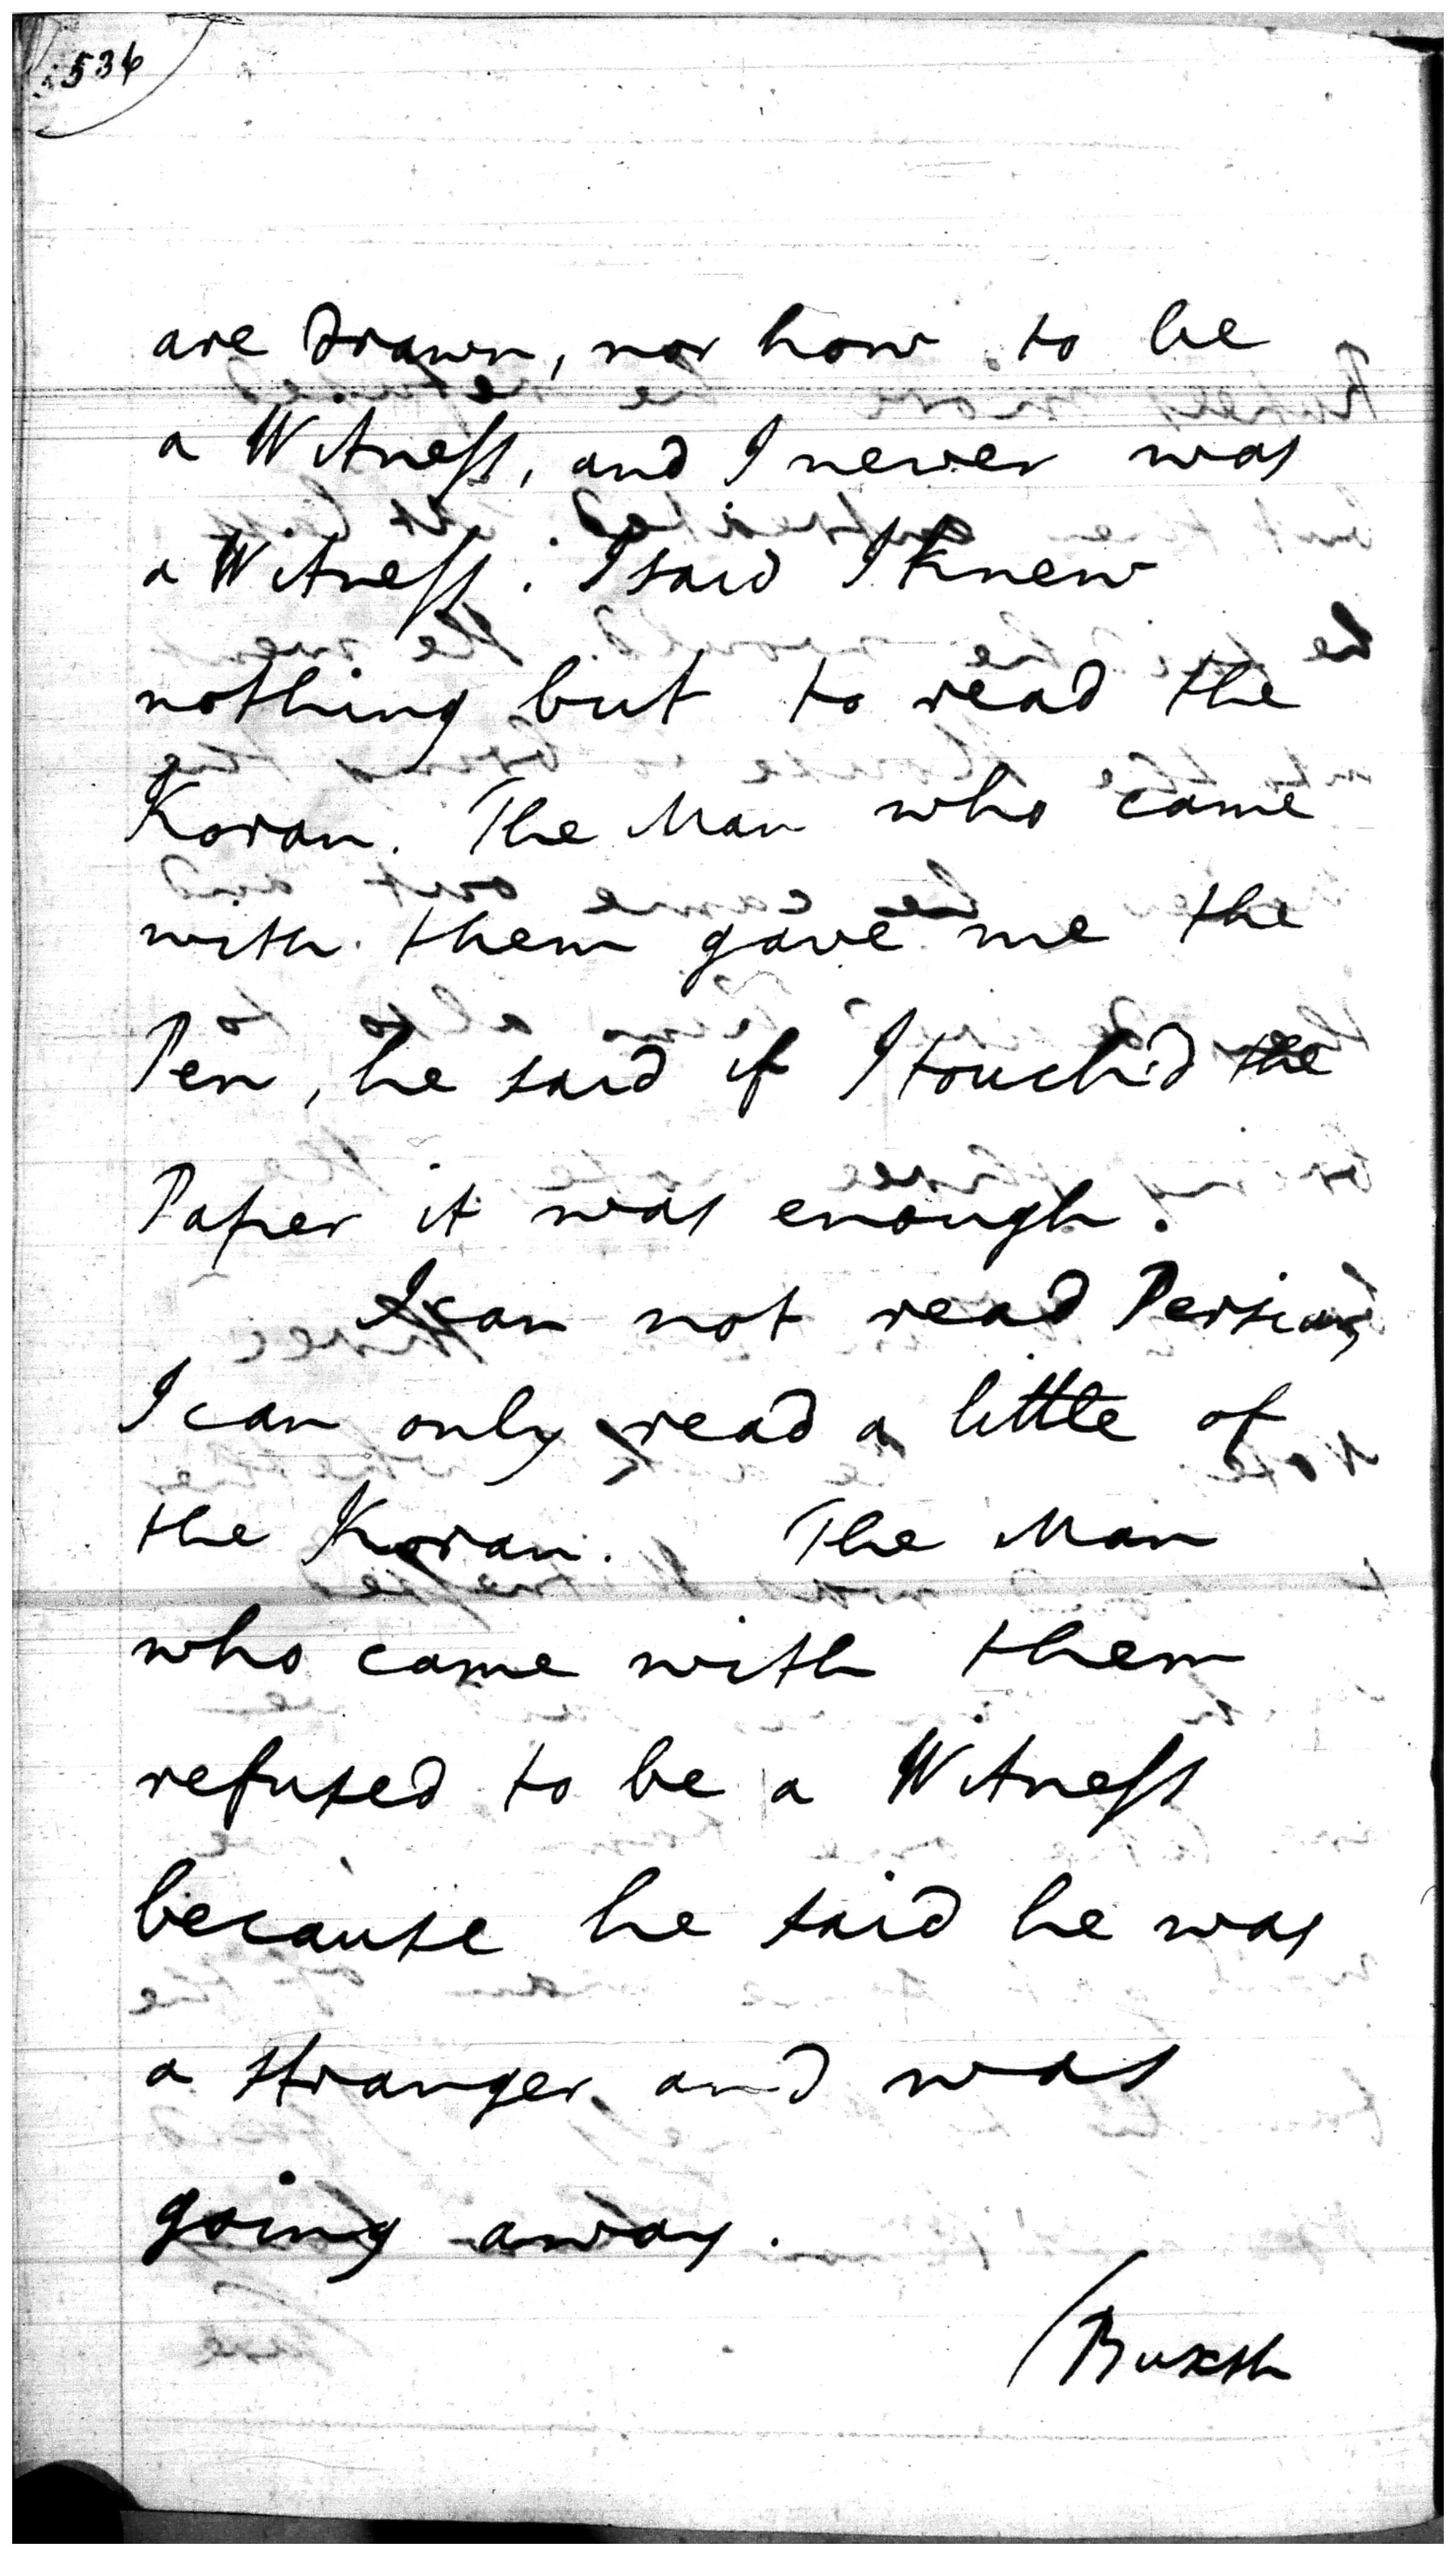 536
are drawn, nor how to be
a Witness, and I never was
a Witness. I said I knew
nothing but to read the
Koran. The Man who came
with them gave me the
Pen, he said if I touch'd the
Paper it was enough.
I can not read Persian,
I can only read a little of
the Koran. The Man
who came with them
refused to be a Witness
because he said he was
a stranger and was
going away.
(Buksh